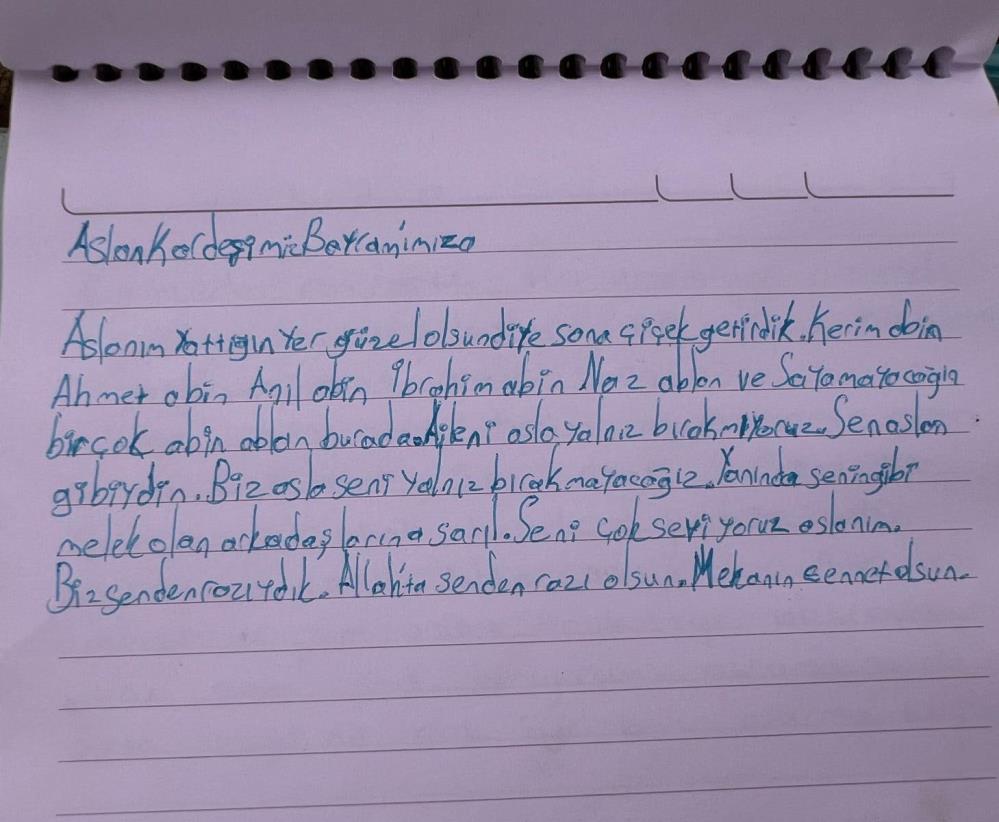 Aslan Kardeşimiz Bayram'ımıza
Aslanım Yattığın Yer güzel olsun diye sana çiçek getirdik. Kerim abin
Ahmet abin Anıl abin İbrahim abin Naz ablan ve Sayamayacağın
birçok abin ablan burada. Aileni asla yalnız bırakmıyoruz. Sen aslan
gibiydin. Biz asla seni Yalnız bırakmayacağız. Yanında senin gibi
melek olan arkadaşlarına sarıl. Seni çok seviyoruz aslanım.
Biz senden razıydık. Allah'ta senden razı olsun. Mekanın cennet olsun.